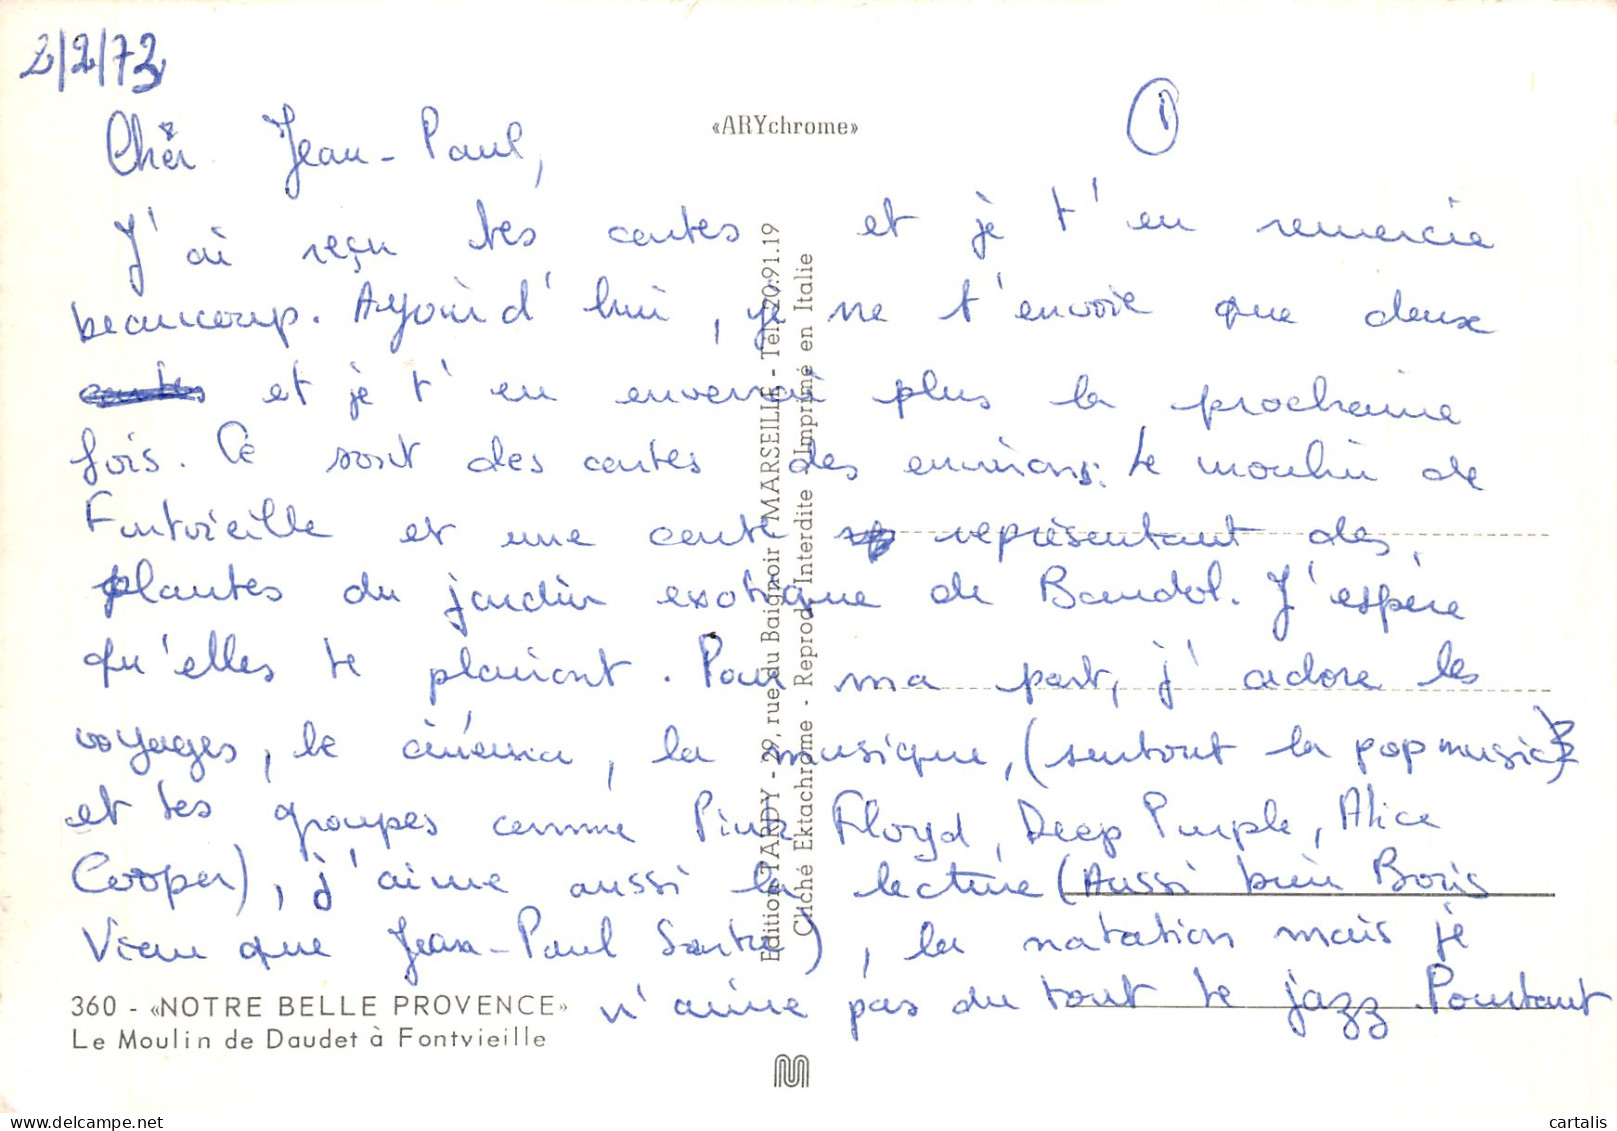 2/2/73
«ARYchrome»
1
Cher Jean-Paul,
J'ai reçu tes cartes et je t'en remercie
beaucoup. Aujourd'hui, je ne t'envoie que deux
cartes et je t'en enverrai plus la prochaine
fois. Ce sont des cartes des environs: le moulin de
Fontvieille et une carte représentant des
plantes du jardin exotique de Bandol. J'espère
qu'elles te plairont. Pour ma part, j'adore les
voyages, le cinéma, la musique, (surtout la pop music)
et les groupes comme Pink Floyd, Deep Purple, Alice
Cooper), j'aime aussi la lecture (Aussi bien Boris
Vian que Jean-Paul Sartre), la natation mais je
n'aime pas du tout le jazz. Pourtant
Edition TARDY - 29, rue du Baignoir - MARSEILLE - Tél. 20.91.19
Cliché Ektachrome - Reprod. Interdite - Imprimé en Italie
360 - «NOTRE BELLE PROVENCE»
Le Moulin de Daudet à Fontvieille
M
cartalis